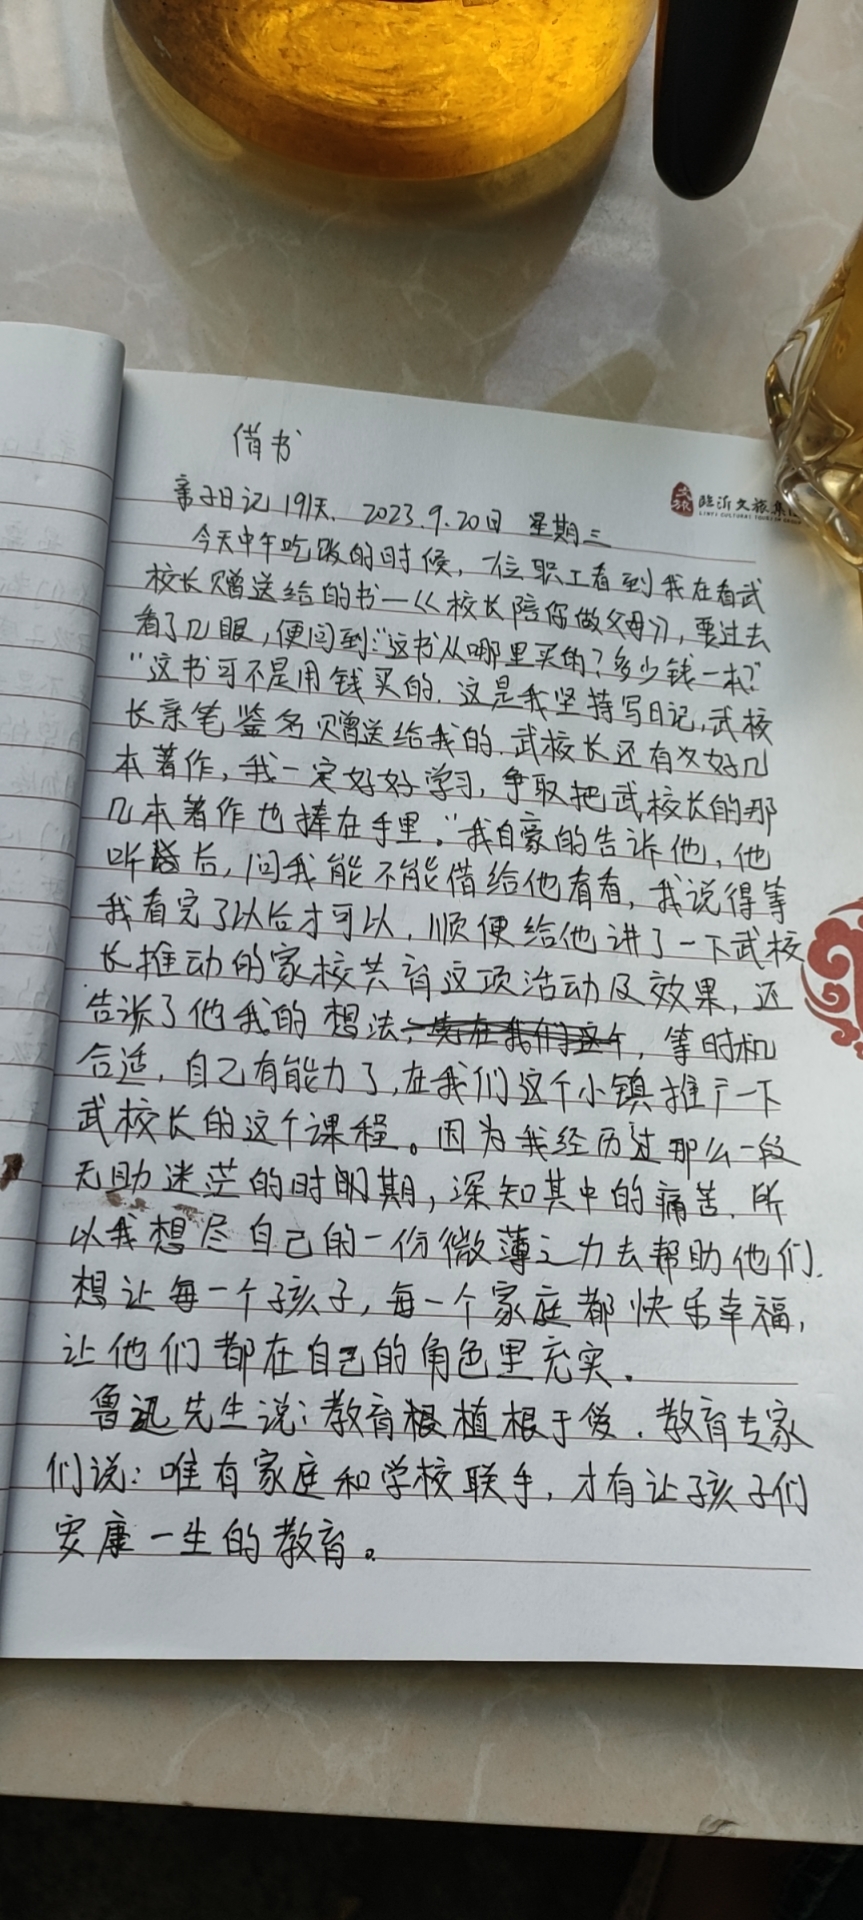 借书
临沂文旅集
亲子日记191天. 2023.9.20日 星期三
今天中午吃饭的时候, 一位职工看到我在看武
校长赠送给的书—《校长陪你做父母》, 要过去
看了几眼, 便问到:“这书从哪里买的? 多少钱一本?”
“这书可不是用钱买的. 这是我坚持写日记, 武校
长亲笔鉴名赠送给我的. 武校长还有好几
本著作, 我一定好好学习, 争取把武校长的那
几本著作也捧在手里。”我自豪的告诉他, 他
听后, 问我能不能借给他看看, 我说得等
我看完了以后才可以, 顺便给他讲了一下武校
长推动的家校共育这项活动及效果, 还
告诉了他我的想法, 等时机
合适, 自己有能力了, 在我们这个小镇推广一下
武校长的这个课程。因为我经历过那么一段
无助迷茫的时期, 深知其中的痛苦. 所
以我想尽自己的一份微薄之力去帮助他们.
想让每一个孩子, 每一个家庭都快乐幸福,
让他们都在自己的角色里充实.
鲁迅先生说: 教育植根于爱. 教育专家
们说: 唯有家庭和学校联手, 才有让孩子们
安康一生的教育。